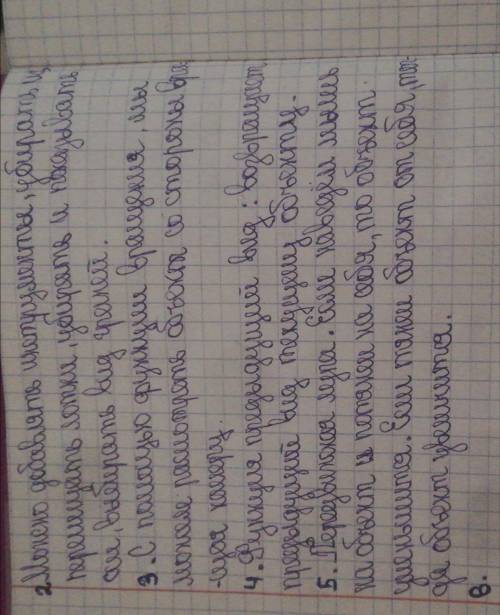 2. Можно добавлять инструменты, убирать и
перемещать лотки, убирать и показывать
си, выбирать вид граней.
3. С помощью функции вращения, мы
можем рассмотреть объект со стороны вра
-щая камеру.
4. Функция предыдущий вид: возвращает
предыдущий вид текущему объекту.
5. Передвижная лупа. Если наведём мышь
на объект и потянем на себя, то объект
уменьшится. Если тянем объект от себя, то-
да объект увеличится.
8.